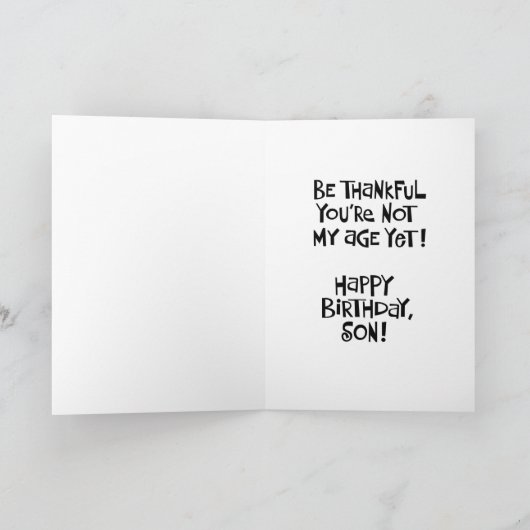 Be Thankful
You're Not
My age yet!
Happy
Birthday,
Son!